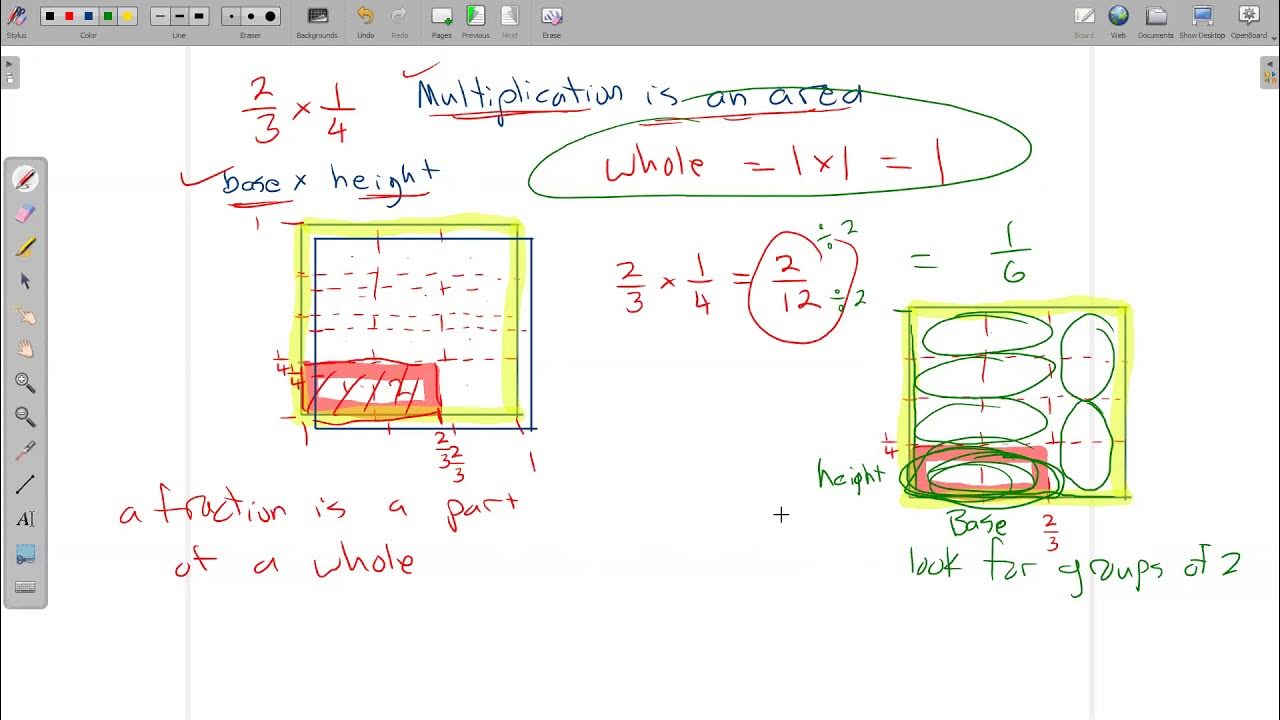 Stylus
Color
Line
Eraser
Backgrounds
Undo
Redo
Pages
Previous
Next
Erase
Board
Web
Documents
Show Desktop
OpenBoard
2/3 × 1/4
Multiplication is an area
whole = 1×1 = 1
base × height
1
1/4
1/4
1
2/3
2/3
1
1
2/3 × 1/4 = 2/12 ÷2 ÷2 = 1/6
1/4
height
Base
2/3
look for groups of 2
a fraction is a part
of a whole